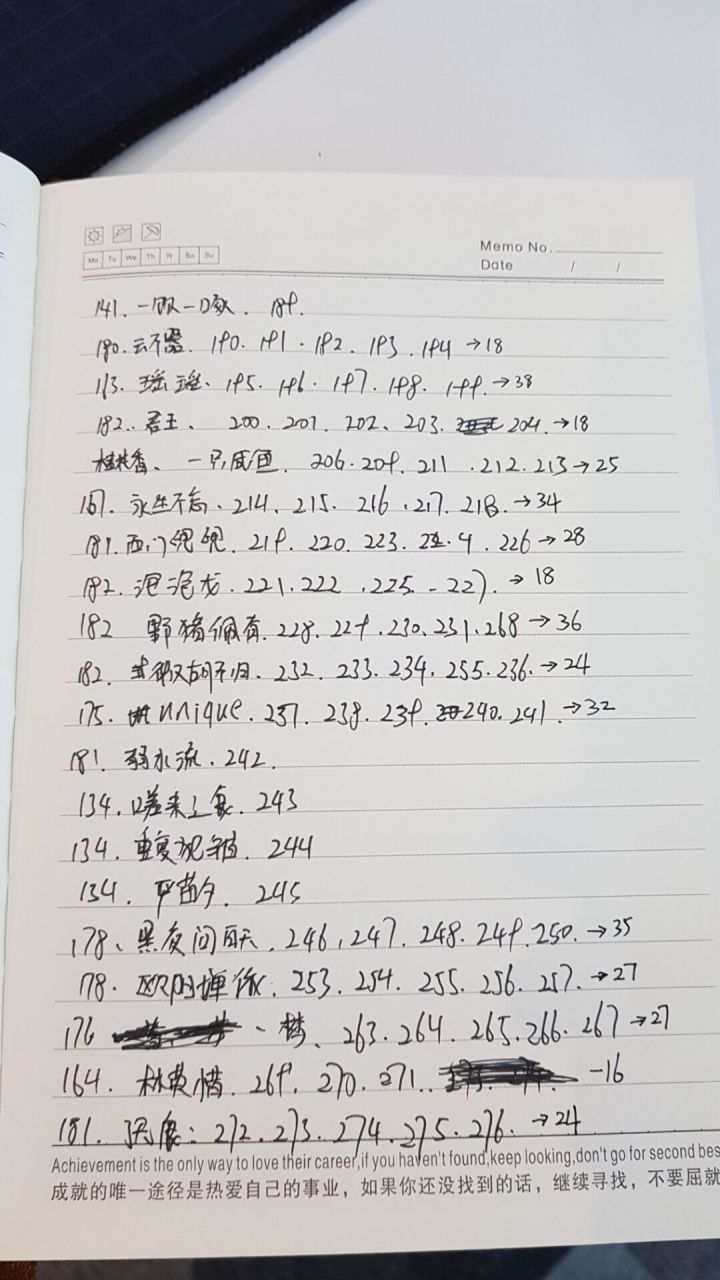 Mo Tu We Th Fr Sa Su
Memo No.
Date / /
141. 一饭一口款. 189.
180. 云不露. 190. 191. 192. 193. 194 →18
113. 瑶瑶. 195. 196. 197. 198. 199. →38
182. 君王. 200. 201. 202. 203. 204. →18
桂花香. 206. 209. 211. 212. 213 →25
167. 永生不忘. 214. 215. 216. 217. 218. →34
181. 西门. 219. 220. 223. 4. 226 →28
182. 泡泡龙. 221. 222. 225. 227. →18
182 野猪佩奇. 228. 229. 230. 231. 268 →36
182. 232. 233. 234. 255. 236. →24
175. unique. 237. 238. 239. 240. 241. →32
181. 弱水流. 242.
134. 嗟来之食. 243
134. 重复. 244
134. 245
178. 黑夜问白天. 246. 247. 248. 249. 250. →35
178. 欧阳. 253. 254. 255. 256. 257. →27
176 一梦. 263. 264. 265. 266. 267 →27
164. 林黄惜. 269. 270. 271. -16
181. 272. 273. 274. 275. 276. →24
Achievement is the only way to love their career,if you haven't found,keep looking,don't go for second bes
成就的唯一途径是热爱自己的事业，如果你还没找到的话，继续寻找，不要屈就